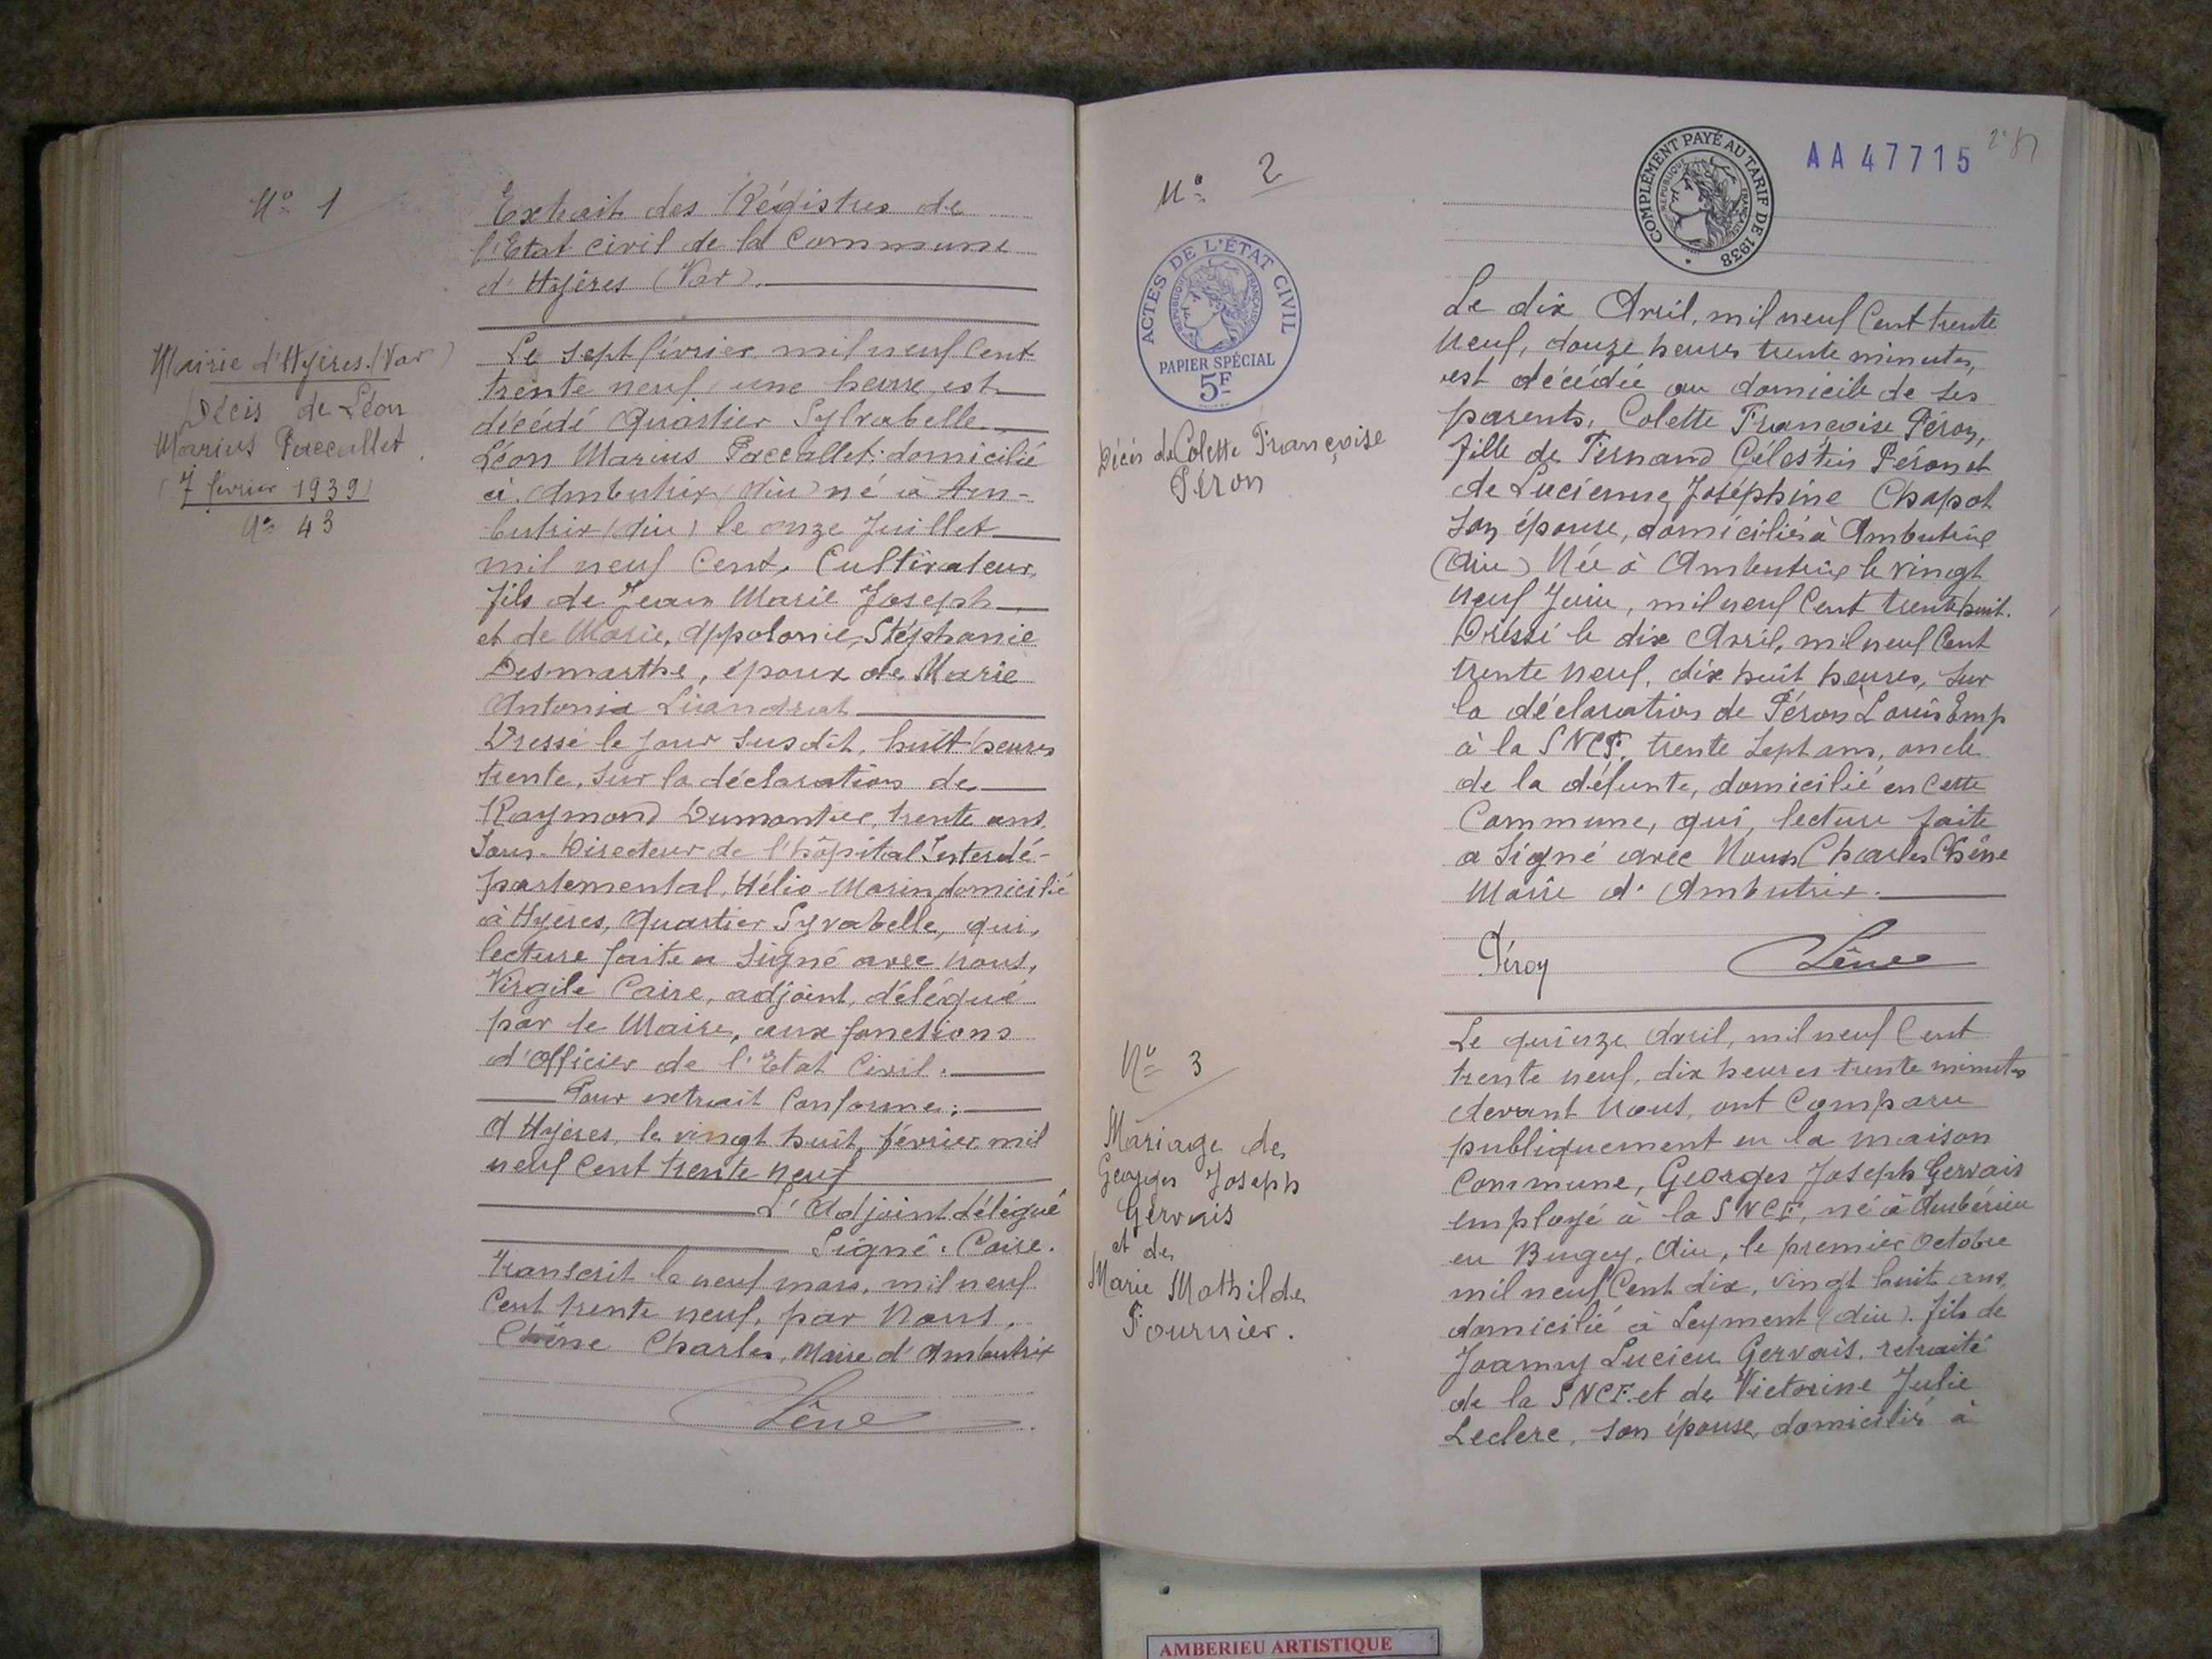 N° 1
Extrait des Régistres de
l'Etat civil de la Commune
d'Hyères (Var).
Mairie d'Hyères. (Var)
Décès de Léon
Marius Paccallet
(7 février 1939)
N° 43
Le sept février mil neuf cent
trente neuf, une heure, est
décédé Quartier Sylvabelle.
Léon Marius Paccallet, domicilié
à Ambutrix (Ain) né à Am-
butrix (Ain) le onze Juillet
mil neuf Cent, Cultivateur,
fils de Jean Marie Joseph
et de Marie, Appolonie, Stéphanie
Desmarthe, époux de Marie
Antonia Liandrat
Dressé le jour susdit, huit heures
trente, sur la déclaration de
Raymond Dumontier, trente ans,
Sous-Directeur de l'hôpital Interdé-
partemental, Hélio-Marin, domicilié
à Hyères, Quartier Syvabelle, qui,
lecture faite a signé avec nous,
Virgile Caire, adjoint, délégué
par le Maire, aux fonctions
d'officier de l'Etat Civil.
Pour extrait Conforme:
d'Hyères, le vingt huit, février mil
neuf Cent trente neuf
L'Adjoint délégué
Signé: Caire.
Transcrit le neuf mars, mil neuf
Cent trente neuf, par Nous,
Chêne Charles, Maire d'Ambutrix
Chêne
N° 2
ACTES DE L'ÉTAT CIVIL
RÉPUBLIQUE FRANÇAISE
PAPIER SPÉCIAL
5F
COMPLÉMENT PAYÉ AU TARIF DE 1938
RÉPUBLIQUE FRANÇAISE
AA 47715
Décès de Colette Françoise
Péron
Le dix Avril, mil neuf Cent trente
Neuf, douze heures trente minutes,
est décédée au domicile de ses
parents, Colette Françoise Péron,
fille de Fernand Célestin Péron et
de Lucienne Joséphine Chapot
son épouse, domiciliés à Ambutrix
(Ain) Née à Ambutrix le vingt
neuf Juin, mil neuf Cent trente huit.
Dressé le dix Avril, mil neuf Cent
trente neuf, dix huit heures, sur
la déclaration de Péron Louis Emp
à la SNCF, trente sept ans, oncle
de la défunte, domicilié en cette
Commune, qui, lecture faite
a signé avec Nous Charles Chêne
Maire d'Ambutrix.
Péron Chêne
N° 3
Mariage de
Georges Joseph
Gervais
et de
Marie Mathilde
Fournier.
Le quinze Avril, mil neuf Cent
trente neuf, dix heures trente minutes
devant Nous, ont Comparu
publiquement en la maison
Commune, Georges Joseph Gervais
employé à la SNCF, né à Ambérieu
en Bugey, Ain, le premier Octobre
mil neuf Cent dix, vingt huit ans,
domicilié à Leyment (Ain). fils de
Joanny Lucien Gervais, retraité
de la SNCF. et de Victorine Julie
Leclerc, son épouse, domicilié à
AMBERIEU ARTISTIQUE